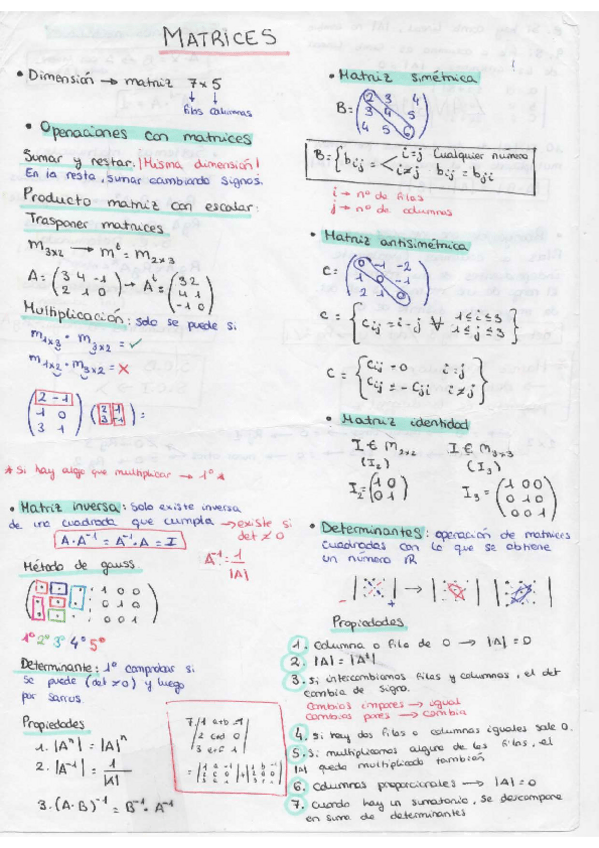 MATRICES
• Dimensión → matriz 7 x 5
filas columnas
• Operaciones con matrices
Sumar y restar. ¡Misma dimensión!
En la resta, sumar cambiando signos.
Producto matriz con escalar:
Trasponer matrices
m3x2 → m^t = m2x3
A = (3 4 -1 / 2 1 0) → A^t = (3 2 / 4 1 / -1 0)
Multiplicación: solo se puede si
m1x3 · m3x2 = ✓
m1x2 · m3x2 = ✗
(2 -1 / 1 0 / 3 1) (2 1 / 3 -1) =
* Si hay algo que multiplicar → 1º *
• Matriz inversa: Solo existe inversa
de una cuadrada que cumpla → existe si
det ≠ 0
A·A^-1 = A^-1·A = I
A^-1 = 1/|A|
Método de gauss
1 0 0
0 1 0
0 0 1
1º 2º 3º 4º 5º
Determinante: 1º comprobar si
se puede (det ≠ 0) y luego
por sarrus.
Propiedades
1. |A^n| = |A|^n
2. |A^-1| = 1/|A|
3. (A·B)^-1 = B^-1 · A^-1
7.
• Matriz simétrica
B = (2 3 4 / 3 4 5 / 4 5 6)
B = { bij = < i=j Cualquier numero
i≠j bij = bji
i → nº de filas
j → nº de columnas
• Matriz antisimétrica
C = (0 -1 -2 / 1 0 -1 / 2 1 0)
C = { Cij = i-j ∀ 1≤i≤3 / 1≤j≤3 }
C = { Cij = 0 i=j / Cij = -Cji i≠j }
• Matriz identidad
I ∈ M2x2 I ∈ M3x3
(I2) (I3)
I2 = (1 0 / 0 1) I3 = (1 0 0 / 0 1 0 / 0 0 1)
• Determinantes: operación de matrices
cuadradas con lo que se obtiene
un número ℝ
- +
Propiedades
1. Columna o fila de 0 → |A| = 0
2. |A| = |A^t|
3. Si intercambiamos filas y columnas, el det
cambia de signo.
Cambios impares → igual
Cambios pares → cambia
4. Si hay dos filas o columnas iguales sale 0.
5. Si multiplicamos alguna de las filas, el
|A| queda multiplicado también
6. Columnas proporcionales → |A| = 0
7. Cuando hay un sumatorio, se descompone
en suma de determinantes